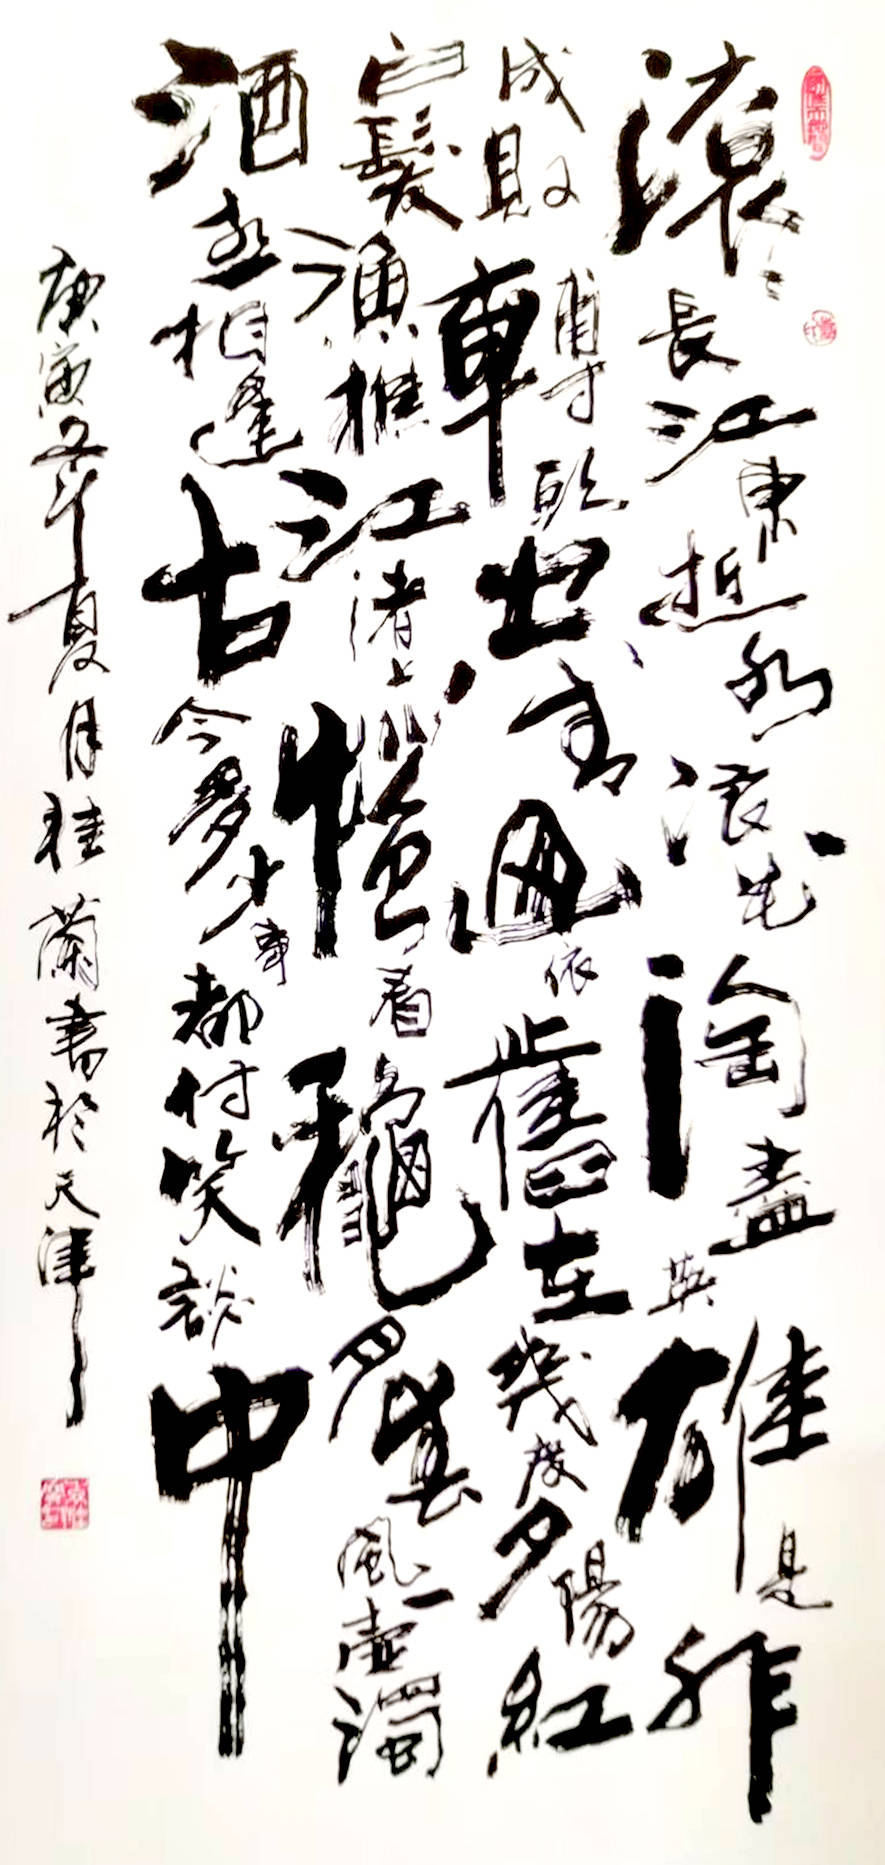 滾滾長江東逝水浪花淘盡英雄是非
成敗轉頭空青山依舊在幾度夕陽紅
白髮漁樵江渚上慣看龝月春風一壺濁
酒喜相逢古今多少事都付笑談中
庚寅年夏月桂蘭書於天津